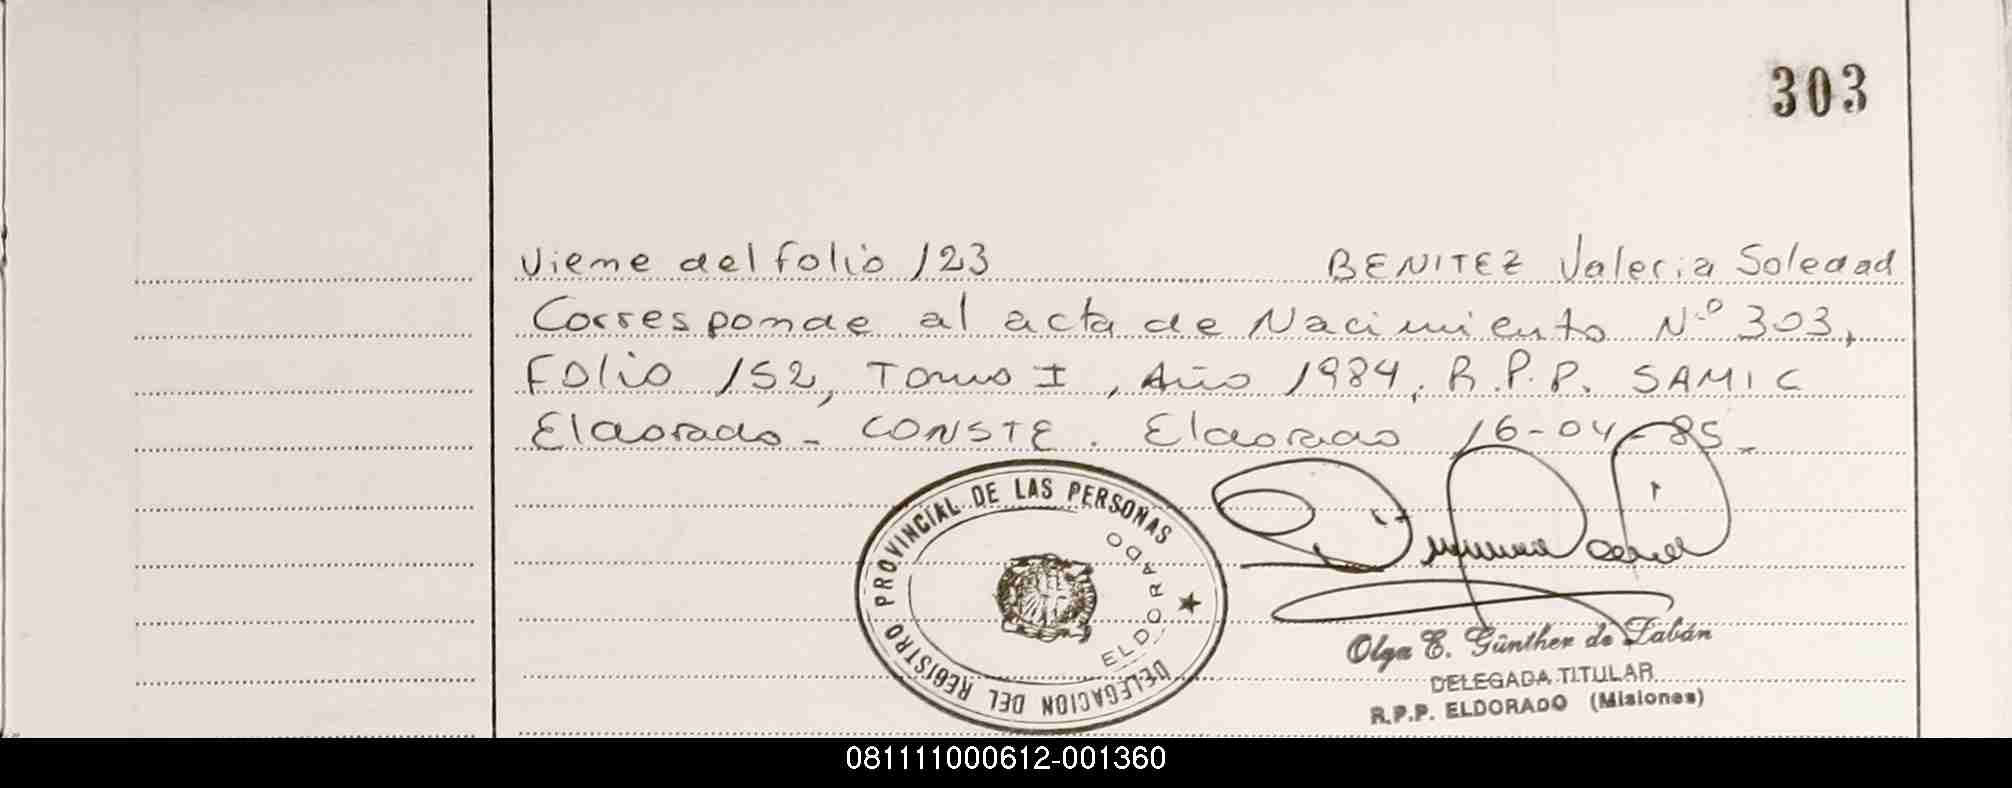 303
Viene del folio 123 BENITEZ Valeria Soledad
Corresponde al acta de Nacimiento Nº 303,
Folio 152, Tomo I, Año 1984, R.P.P. SAMIC
Eldorado - CONSTE. Eldorado 16-04-85-
DELEGACION DEL REGISTRO PROVINCIAL DE LAS PERSONAS
ELDORADO
Olga E. Günther de Zabán
DELEGADA TITULAR
R.P.P. ELDORADO (Misiones)
081111000612-001360